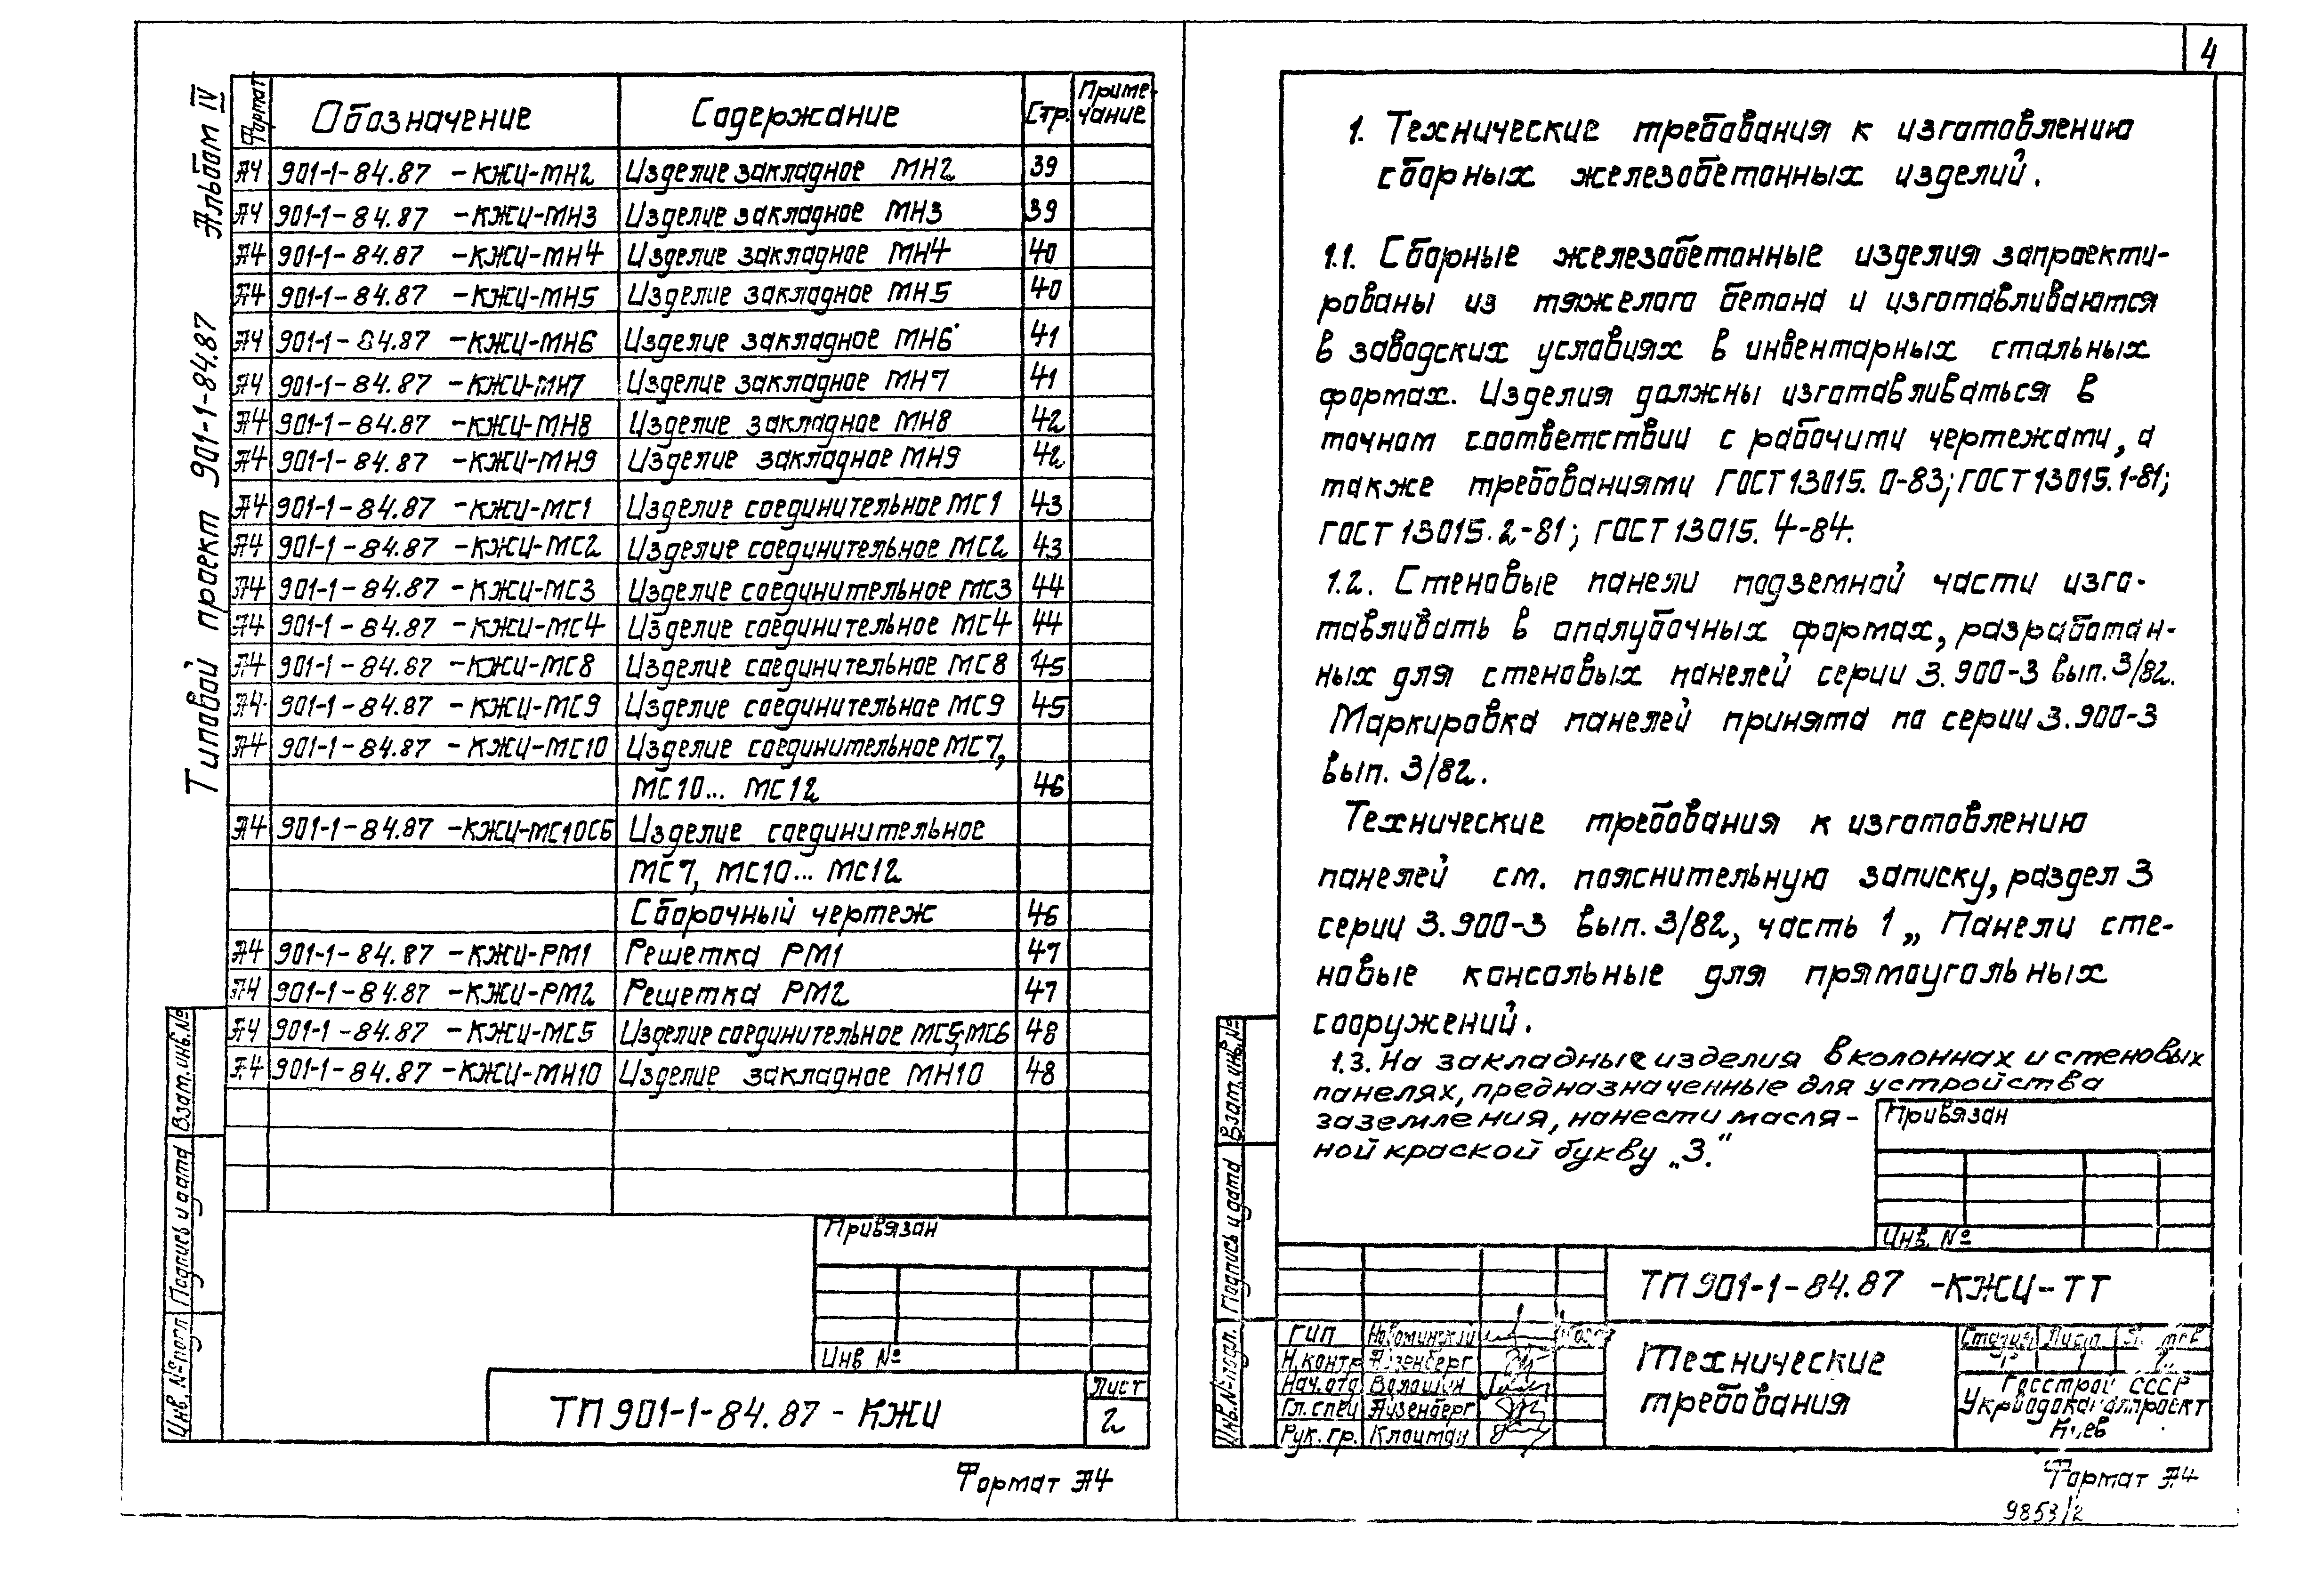 4
Типовой проект 901-1-84.87 Альбом IV
Формат Обозначение Содержание Стр. Приме-
чание
А4 901-1-84.87 -КЖИ-МН2 Изделие закладное МН2 39
А4 901-1-84.87 -КЖИ-МН3 Изделие закладное МН3 39
А4 901-1-84.87 -КЖИ-МН4 Изделие закладное МН4 40
А4 901-1-84.87 -КЖИ-МН5 Изделие закладное МН5 40
А4 901-1-84.87 -КЖИ-МН6 Изделие закладное МН6 41
А4 901-1-84.87 -КЖИ-МН7 Изделие закладное МН7 41
А4 901-1-84.87 -КЖИ-МН8 Изделие закладное МН8 42
А4 901-1-84.87 -КЖИ-МН9 Изделие закладное МН9 42
А4 901-1-84.87 -КЖИ-МС1 Изделие соединительное МС1 43
А4 901-1-84.87 -КЖИ-МС2 Изделие соединительное МС2 43
А4 901-1-84.87 -КЖИ-МС3 Изделие соединительное МС3 44
А4 901-1-84.87 -КЖИ-МС4 Изделие соединительное МС4 44
А4 901-1-84.87 -КЖИ-МС8 Изделие соединительное МС8 45
А4 901-1-84.87 -КЖИ-МС9 Изделие соединительное МС9 45
А4 901-1-84.87 -КЖИ-МС10 Изделие соединительное МС7,
МС10... МС12 46
А4 901-1-84.87 -КЖИ-МС10СБ Изделие соединительное
МС7, МС10... МС12
Сборочный чертеж 46
А4 901-1-84.87 -КЖИ-РМ1 Решетка РМ1 47
А4 901-1-84.87 -КЖИ-РМ2 Решетка РМ2 47
А4 901-1-84.87 -КЖИ-МС5 Изделие соединительное МС5,МС6 48
А4 901-1-84.87 -КЖИ-МН10 Изделие закладное МН10 48
Привязан
Инв №
Инв. № подл Подпись и дата Взам. инв. №
ТП 901-1-84.87 - КЖИ
Лист
2
Формат А4
1. Технические требования к изготовлению
сборных железобетонных изделий.
1.1. Сборные железобетонные изделия запроекти-
рованы из тяжелого бетона и изготавливаются
в заводских условиях в инвентарных стальных
формах. Изделия должны изготавливаться в
точном соответствии с рабочими чертежами, а
также требованиями ГОСТ 13015.0-83; ГОСТ 13015.1-81;
ГОСТ 13015.2-81; ГОСТ 13015.4-84.
1.2. Стеновые панели подземной части изго-
тавливать в опалубочных формах, разработан-
ных для стеновых панелей серии 3.900-3 вып.3/82.
Маркировка панелей принята по серии 3.900-3
вып. 3/82.
Технические требования к изготовлению
панелей см. пояснительную записку, раздел 3
серии 3.900-3 вып.3/82, часть 1 „Панели сте-
новые консольные для прямоугольных
сооружений.
1.3. На закладные изделия в колоннах и стеновых
панелях, предназначенные для устройства
заземления, нанести масля-
ной краской букву „З."
Привязан
Инв. №
Инв. № подл. Подпись и дата Взам. инв. №
ТП 901-1-84.87 -КЖИ-ТТ
ГИП Новоминский
Н.контр Айзенберг
Нач.отд Волошин
Гл.спец Айзенберг
Рук. гр.
Технические
требования
Стадия Лист
1
Госстрой СССР
Укрводоканалпроект
Киев
Формат А4
9853/2